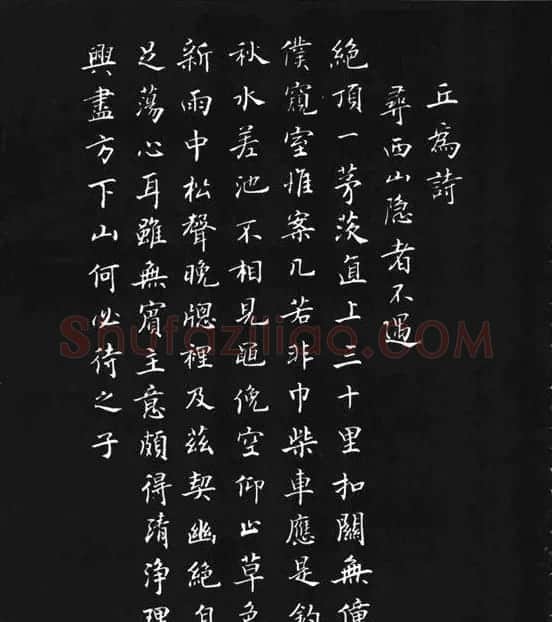 丘為詩
尋西山隐者不遇
絕頂一茅茨直上三十里扣關無僮
僕窺室惟案几若非巾柴車應是釣
秋水差池不相見黽俛空仰止草色
新雨中松聲晚牕裡及茲契幽絕自
足蕩心耳雖無賓主意頗得清淨理
興盡方下山何必待之子
Shufaziliao.COM